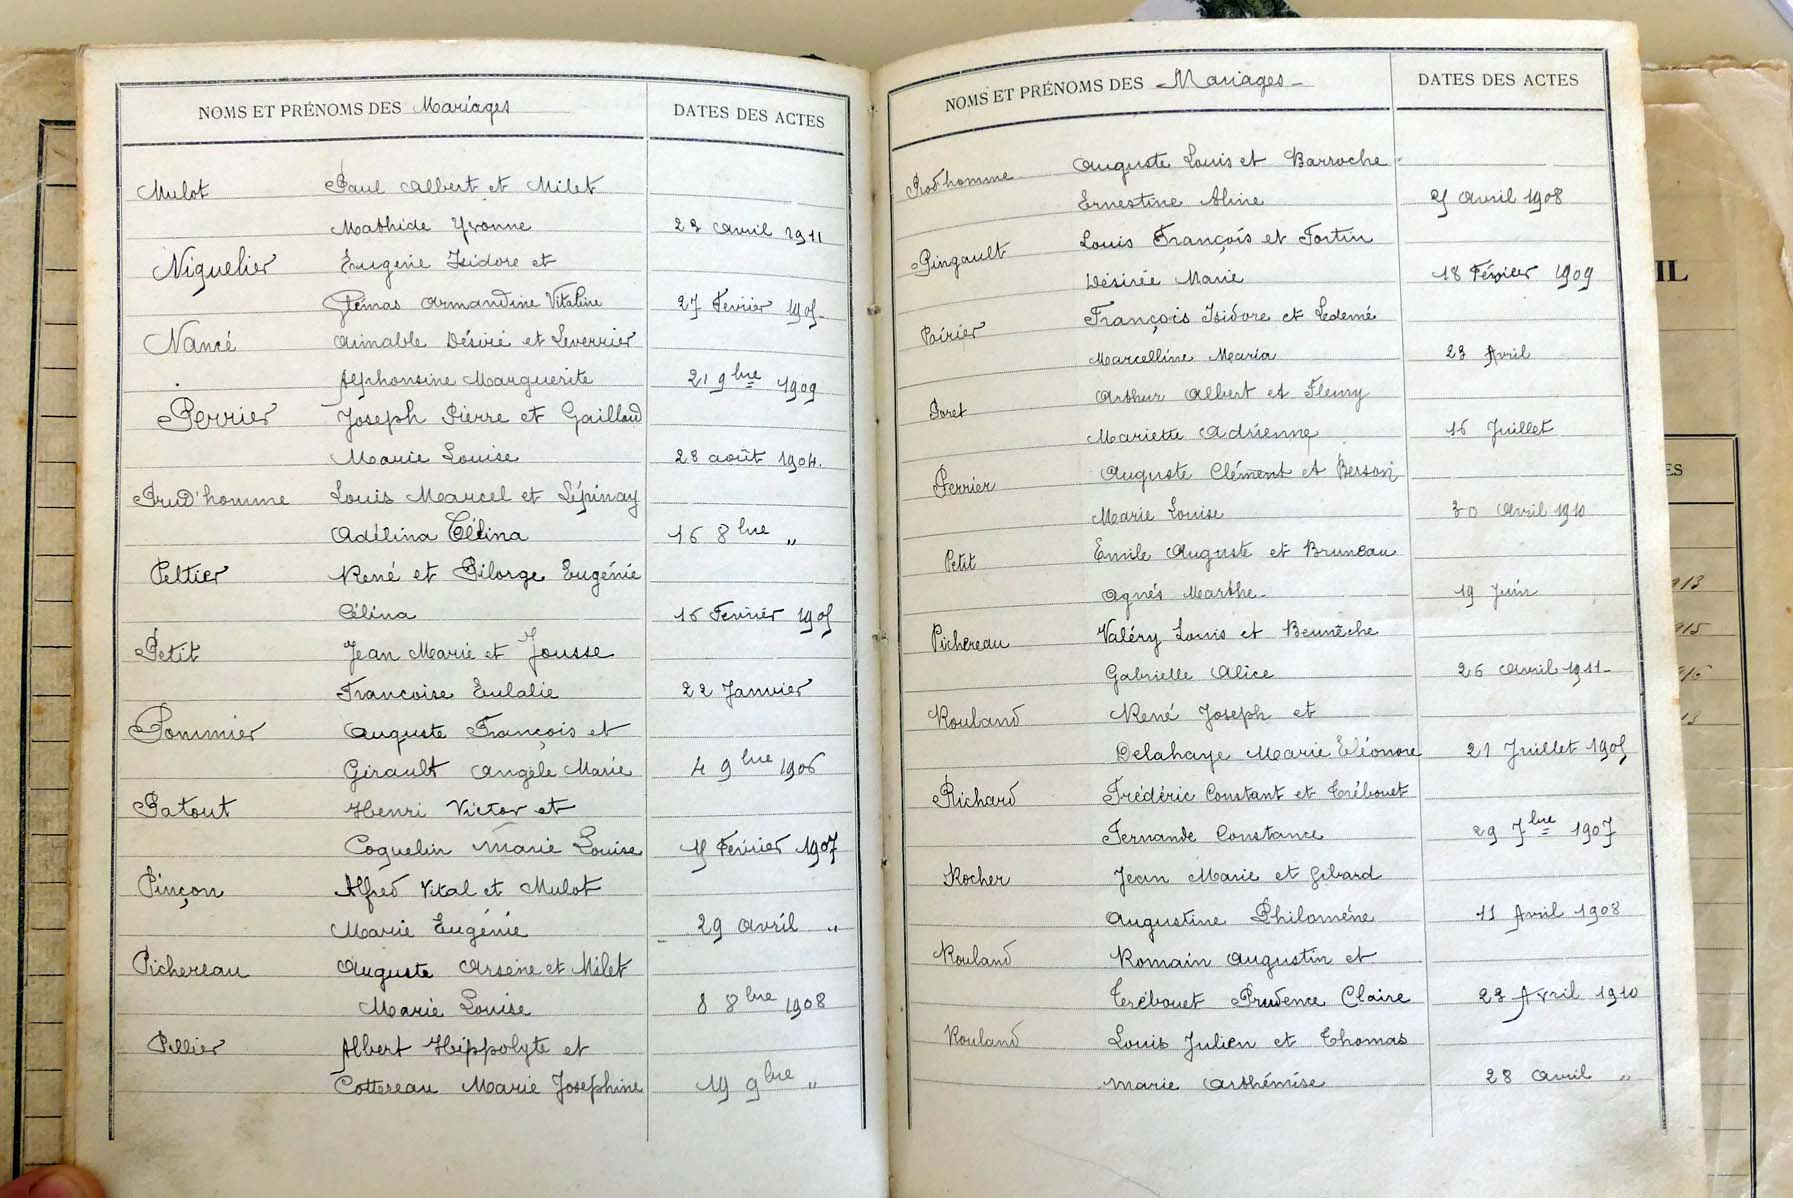 NOMS ET PRÉNOMS DES Mariages DATES DES ACTES
Mulot Paul Albert et Milet
Mathide Yvonne 23 avril 1911
Niguelier Eugène Isidore et
Gémas Armandine Vitaline 27 Fevrier 1905
Nancé Aimable Désiré et Leverrier
Alphonsine Marguerite 21 9bre 1909
Perrier Joseph Pierre et Gaillard
Marie Louise 28 août 1904.
Prud'homme Louis Marcel et Lépinay
Adélina Célina 16 8bre "
Peltier René et Pilorge Eugénie
Célina 16 Fevrier 1905
Petit Jean Marie et Jousse
Francoise Eulalie 22 Janvier
Pommier Auguste François et
Girault Angèle Marie 4 9bre 1906
Patout Henri Victor et
Coquelin Marie Louise Fevrier 1907
Pinçon Alfred Vital et Mulot
Marie Eugénie 29 avril "
Pichereau Auguste Arsène et Milet
Marie Louise 8 8bre 1908
Pellier Albert Hippolyte et
Cottereau Marie Joséphine 19 9bre "
NOMS ET PRÉNOMS DES Mariages DATES DES ACTES
Prodhomme Auguste Louis et Barroche
Ernestine Aline avril 1908
Pingault Louis François et Fortin
Désirée Marie 18 Février 1909
Poirier François Isidore et Ledemé
Marcelline Maria 23 Avril
Poret Arthur Albert et Fleury
Mariette Adrienne 16 Juillet
Perrier Auguste Clément et Besson
Marie Louise 30 avril 1910
Petit Emile Auguste et Bruneau
Agnés Marthe 19 Juin
Pichereau Valéry Louis et Beunèche
Gabrielle Alice 26 avril 1911
Rouland René Joseph et
Delahaye Marie Eléonore 21 Juillet 1905
Richard Frédéric Constant et Trébouet
Fernande Constance 29 7bre 1907
Rocher Jean Marie et Gibard
Augustine Philomène 11 Avril 1908
Rouland Romain Augustin et
Trébouet Prudence Claire 23 Avril 1910
Rouland Louis Julien et Thomas
Marie Arthémise 28 avril "
IL
ES
913
915
916
13